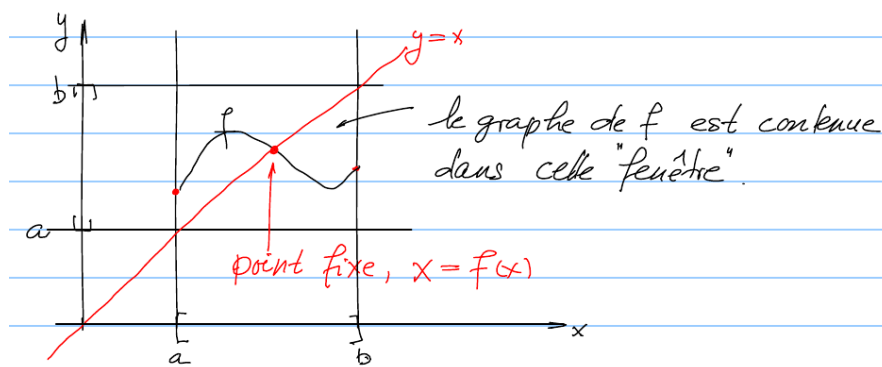 y
y = x
b
f
le graphe de f est contenue
dans cette "fenêtre".
a
point fixe, x = f(x)
x
[ ]
a b